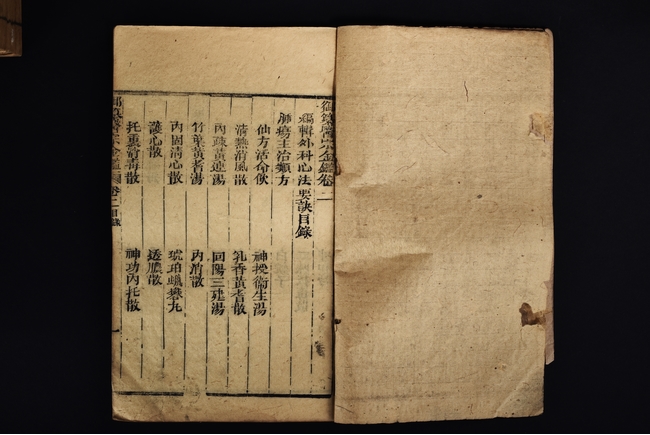 御纂醫宗金鑑卷二
編輯外科心法要訣目錄
腫瘍主治類方
仙方活命飲　神授衞生湯
清熱消風散　乳香黃耆散
內疎黃連湯　回陽三建湯
竹葉黃耆湯　內消散
內固清心散　琥珀蠟礬丸
護心散　透膿散
托裏消毒散　神功內托散
御纂醫宗金鑑　卷二目錄　一